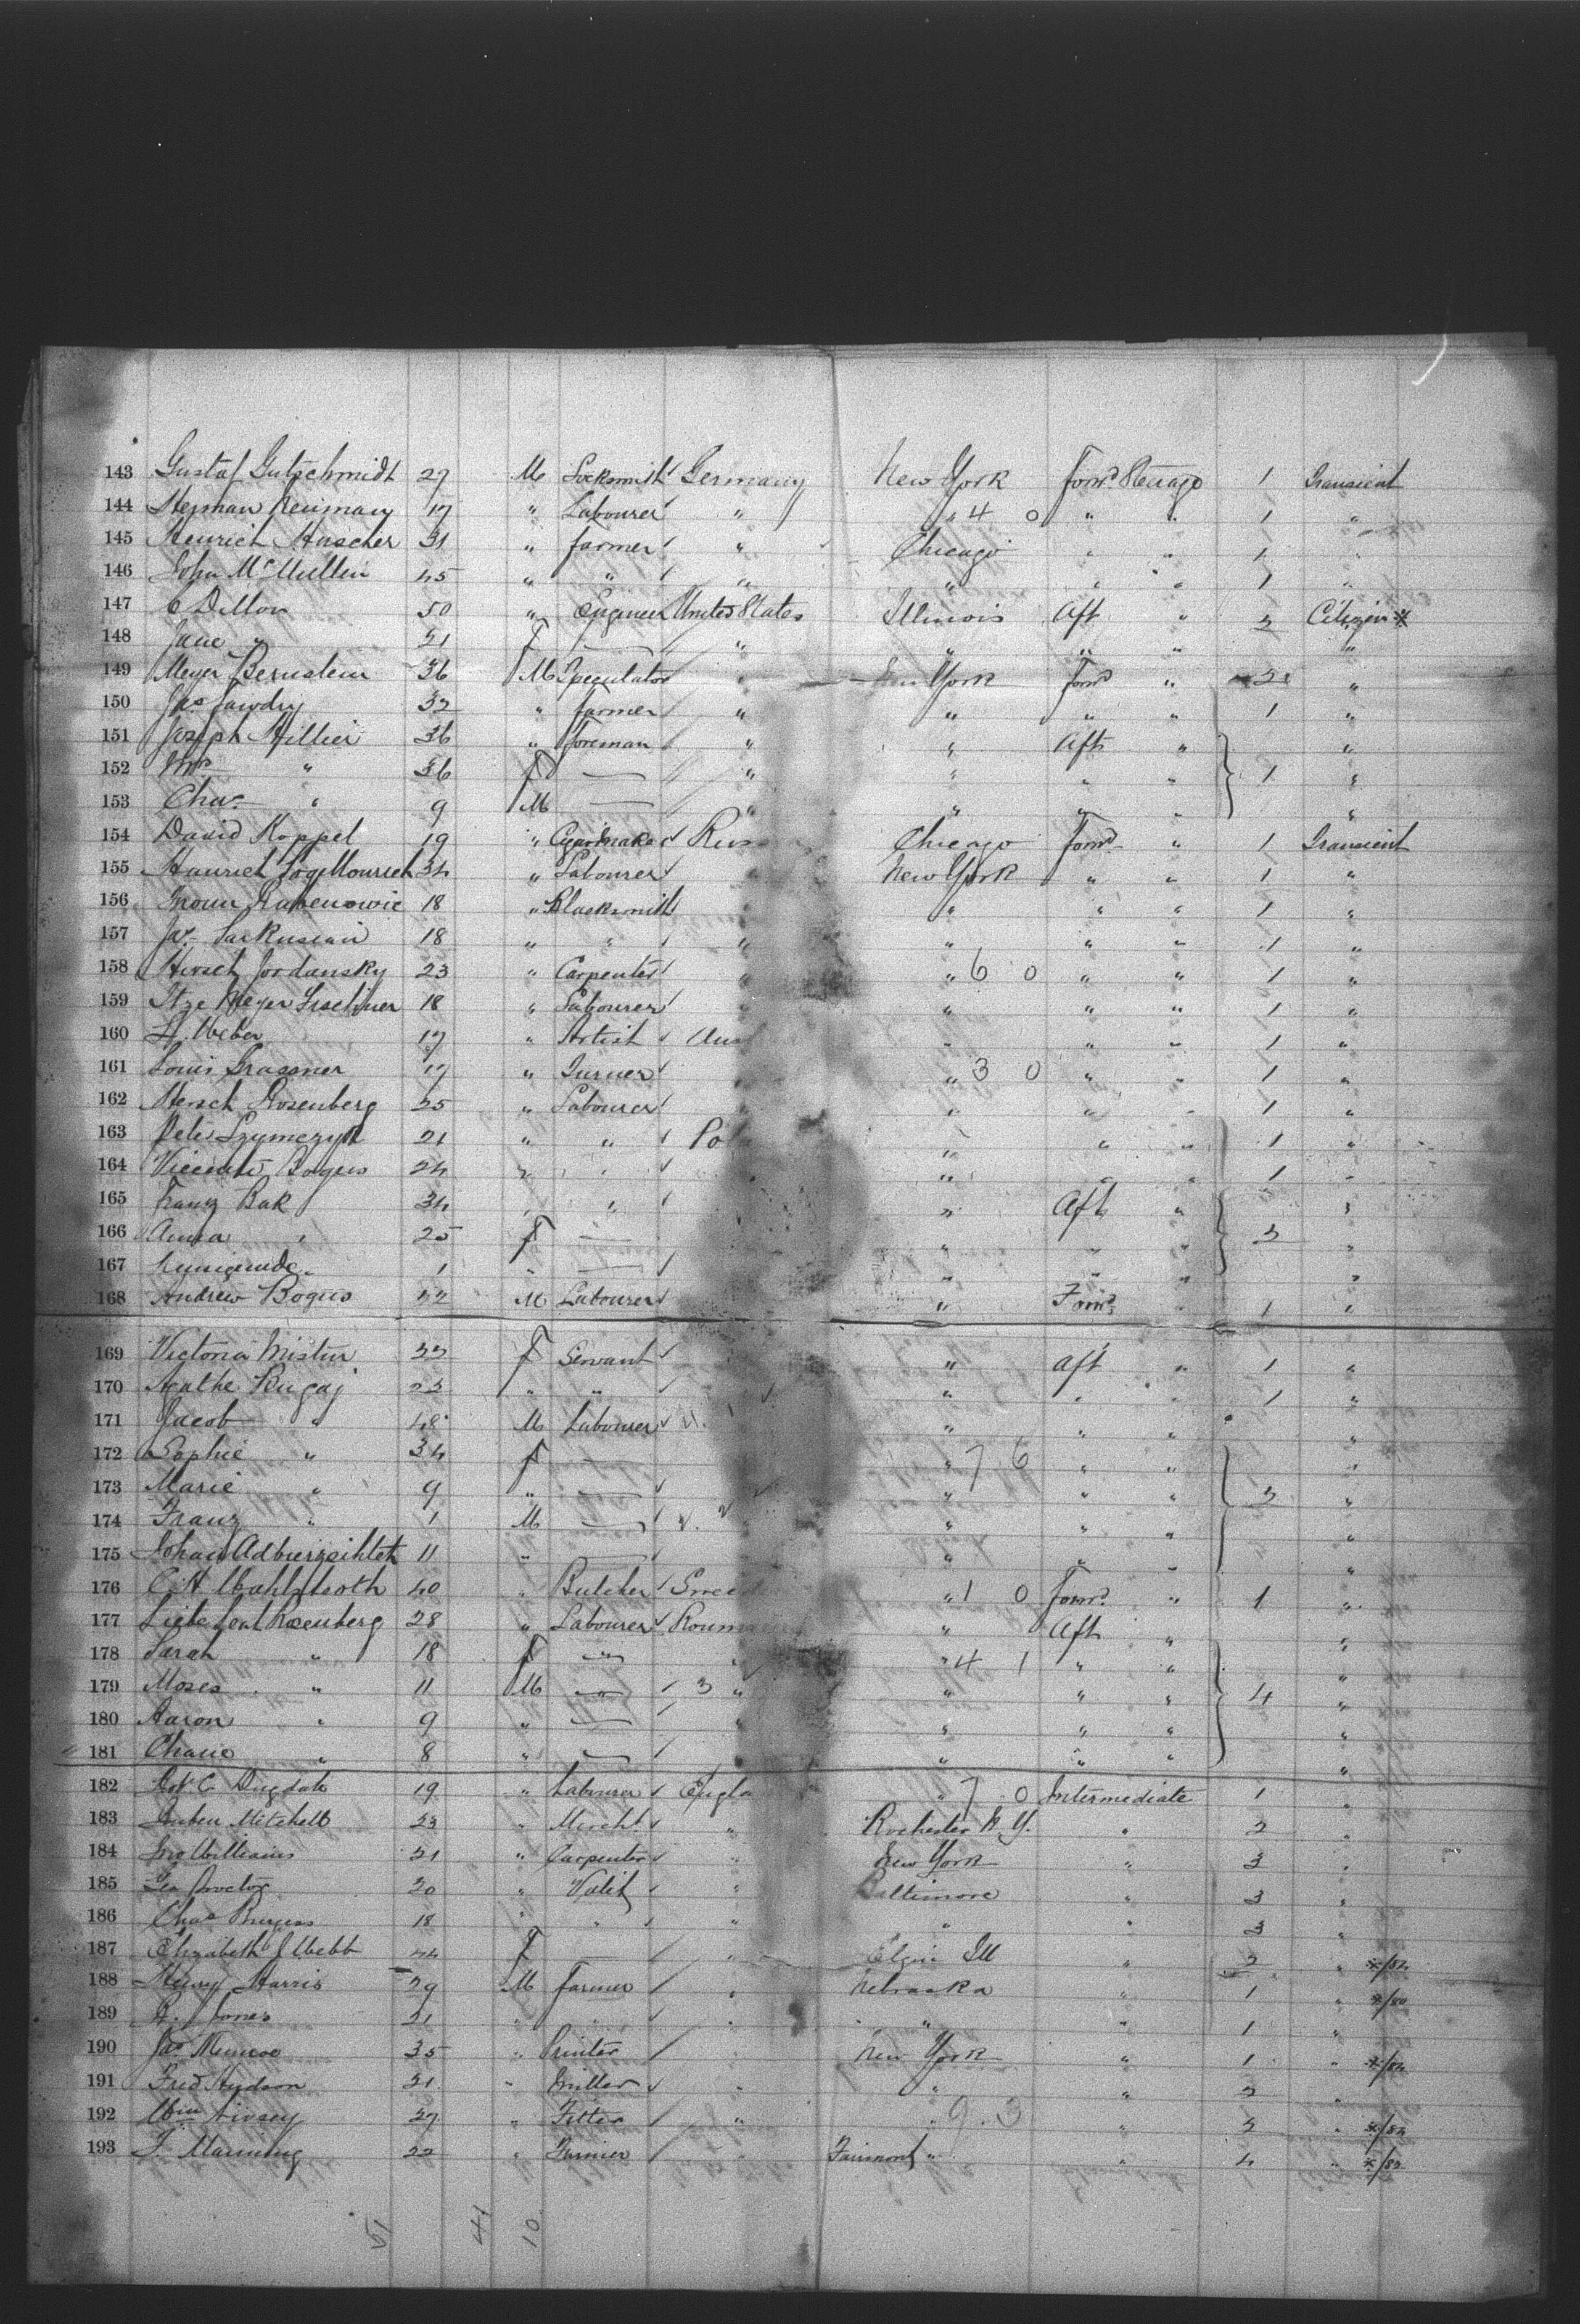 143 Gustaf Gutzchmidt 27 M Locksmith Germany New York Forwd. Steerage 1 Transient
144 Herman Neumann 17 " Labourer " " 4 0 " " 1 "
145 Heinrich Huscher 31 " farmer " Chicago " " 1 "
146 John McMullen 45 " " " " " " 1 "
147 C Dillon 50 " Engineer United States Illinois Aft " 2 Citizen *
148 Jane " 21 F — " " " " "
149 Meyer Bernstein 36 M Speculator " New York Forwd " 2 "
150 Jas Jawdry 32 " farmer " " " " 1 "
151 Joseph Hillier 36 " Foreman " " Aft " "
152 Mrs " 36 F — " " " " 1 "
153 Chas " 9 M — " " " " "
154 David Koppel 19 " Cigarmaker Russ Chicago Forwd " 1 Transient
155 34 " Labourer New York " " 1 "
156 18 " Blacksmith " " " 1 "
157 Jas. 18 " " " " " " 1 "
158 Hirsch Jordansky 23 " Carpenter " 6 0 " " 1 "
159 Itze Meyer 18 " Labourer " " " 1 "
160 H. Weber 17 " Artist Aus " " " 1 "
161 Louis Grassner 17 " Turner " 3 0 " " 1 "
162 Hersch Rosenberg 25 " Labourer " " " 1 "
163 Pete Szymczyk 21 " " Pol " " " 1 "
164 Bogus 24 " " " " " 1 "
165 Franz Bak 34 " " " Aft " "
166 Anna " 25 F — " " " 2 "
167 Kunigunde " 1 " — " " " "
168 Andrew Bogus 22 M Labourer " Forwd " 1 "
169 Victoria Mistur 22 F Servant " Aft " 1 "
170 Agathe Rugaj 23 " " " " " 1 "
171 Jacob " 48 M Labourer " " " "
172 Sophie " 34 F — " 7 6 " " "
173 Marie " 9 " — " " " 3 "
174 Franz " 1 M — " " " "
175 Johan 11 " — " " " "
176 C. H. 40 " Butcher Swed " 1 0 Forwd " 1 "
177 Rosenberg 28 " Labourer Roum " Aft " "
178 Sarah " 18 F — " " 4 1 " " "
179 Moses " 11 M — 3 " " " " 4 "
180 Aaron " 9 " — " " " "
181 " 8 " — " " " "
182 Dugdale 19 " Labourer Engla " 7 0 Intermediate 1 "
183 Ruben Mitchell 23 " Mercht. " Rochester N. Y. " 2 "
184 Jno Williams 21 " Carpenter " New York " 3 "
185 Geo Proctor 20 " Valet " Baltimore " 3 "
186 Chas Burgess 18 " " " " " 3 "
187 Elizabeth J Webb 44 F — " Elgin Ill " 2 " */82
188 Henry Harris 29 M Farmer " Nebraska " 1 " */80
189 R. J. Jones 21 " " " " " 1 "
190 Jas Munroe 35 " Printer " New York " 1 " */82
191 Fred Hydson 21 " Miller " " " 2 "
192 Wm Livsey 27 " Fitter " " 9.3 " 2 " */82
193 F. Manning 22 " Farmier " Fairmont " " 4 " */82
51 41 10